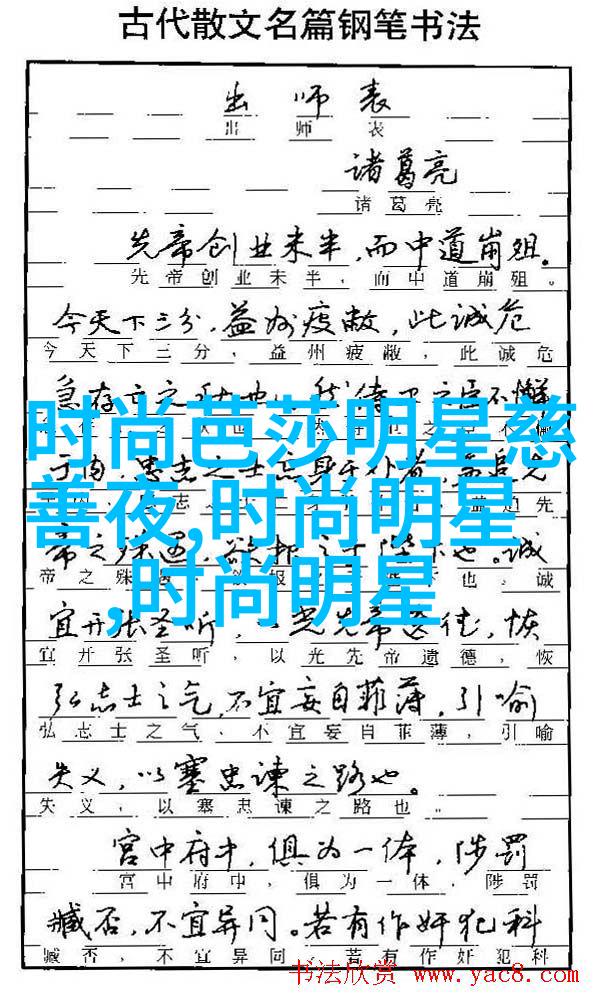 古代散文名篇钢笔书法
出师表
出师表
诸葛亮
诸葛亮
先帝创业未半,而中道崩殂。
先帝创业未半,而中道崩殂。
今天下三分,益州疲敝,此诚危
今天下三分,益州疲敝,此诚危
急存亡之秋也 侍卫之臣不懈
时尚芭莎明星慈
于内 忠志之士忘身于外者,盖追先
追先
善夜,时尚明星
帝之殊遇 欲报之于陛下也。诚
帝之殊 也,诚
,时尚明星
宜开张圣听,以光先帝遗德,恢
宜开张圣听,以光先帝遗德,恢
弘志士之气,不宜妄自菲薄,引喻
弘志士之气,不宜妄自菲薄,引喻
失义,以塞忠谏之路也。
失义,以塞忠谏之路也。
宫中府中,俱为一体,陟罚
宫中府中,俱为一体,陟罚
臧否,不宜异同。若有作奸犯科
臧否,不宜异同。若有作奸犯科
书法欣赏 www.yac8.com